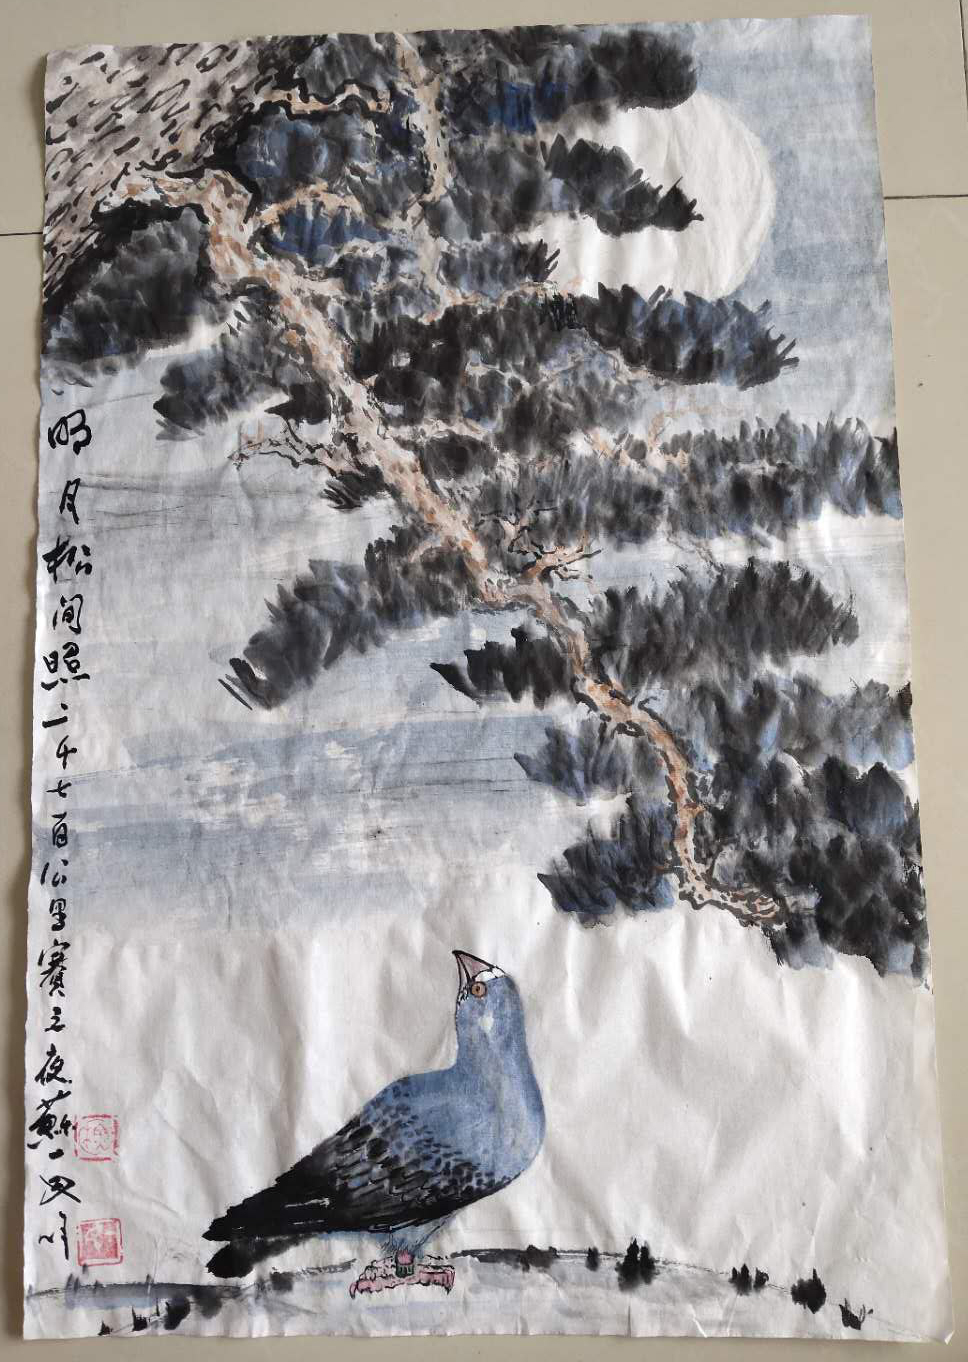 明月松间照二千七百公里赛之夜苏一